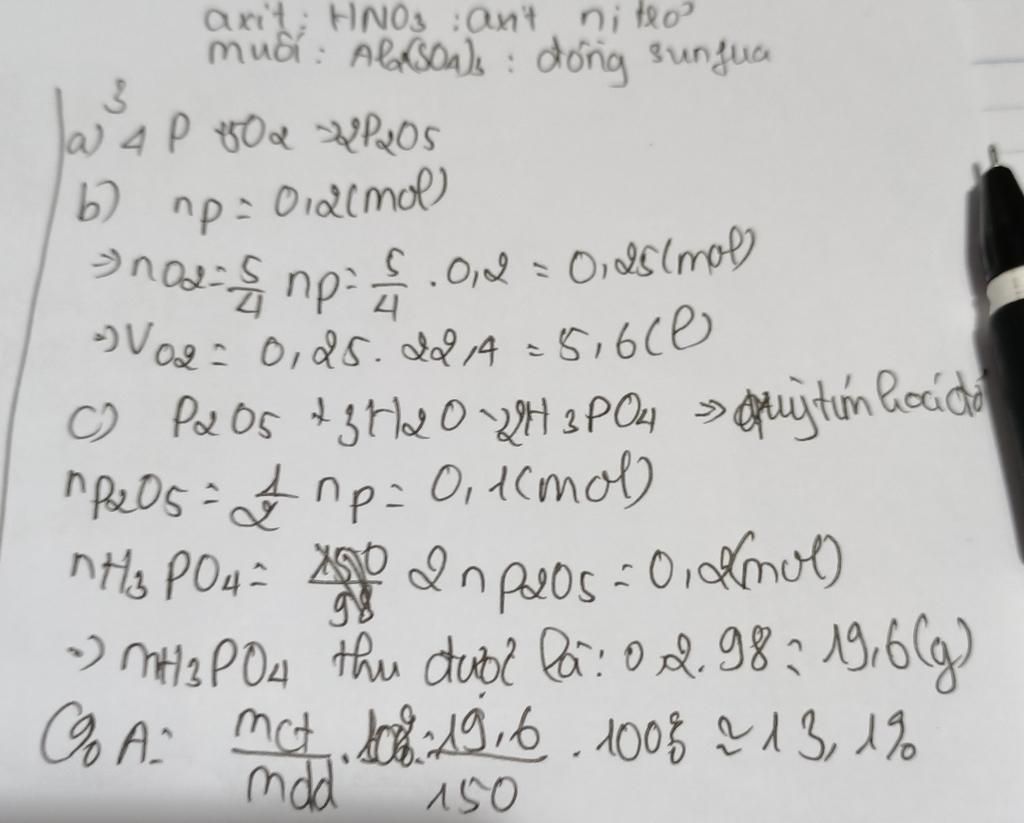 axit: HNO3 : axit nitơ
muối: Al2(SO4)3 : đồng sunfua
3
a) 4 P + 5O2 → 2P2O5
b) nP = 0,2 (mol)
⇒ nO2 = 5/4 nP = 5/4 . 0,2 = 0,25 (mol)
⇒ VO2 = 0,25 . 22,4 = 5,6 (l)
c) P2O5 + 3H2O → 2H3PO4 ⇒ quỳ tím hoá đỏ
nP2O5 = 1/2 nP = 0,1 (mol)
nH3PO4 = 2 nP2O5 = 0,2 (mol)
⇒ mH3PO4 thu được là: 0,2.98 = 19,6 (g)
C% A = mct/mdd . 100% = 19,6/150 . 100% ≈ 13,1%